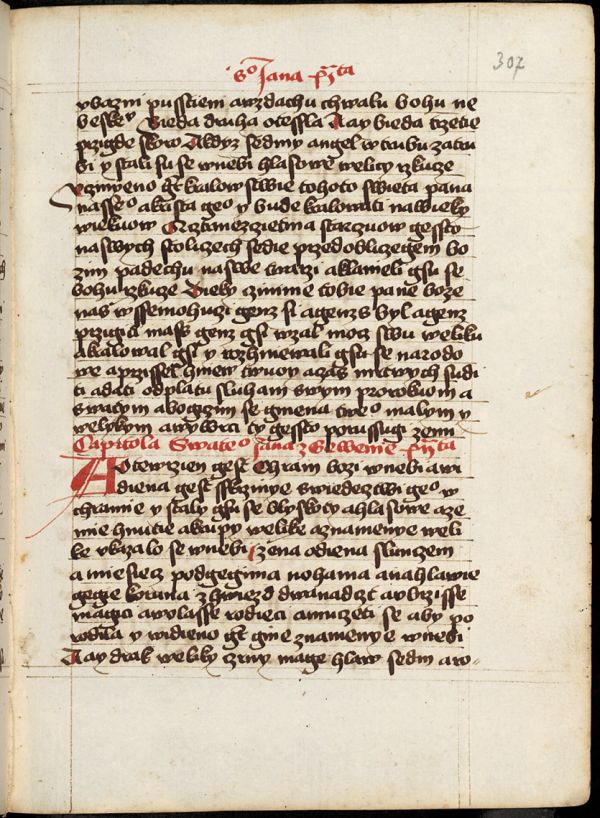 307
S° Jana p̄ta
v bazni pusstieni a wzdachu chwalu bohu ne
beske° Bieda druha otessla A ay bieda trzetie
przigde skoro A kdyz sedmy angel w trubu zatru
bi y stali su se w nebi hlasowe welicy rzkuze
Vczinyeno gt kralowstwie tohoto swieta pana
nasse° a krista ge° y bude kralowati na wieky
wiekuow A cztanezczietma starczuow gessto
na swych stoliczech sedie przed obliczegem bo
zim padechu na swe twarzi a klaneli gsu se
bohu rzkuze Dieky czinime tobie pane boze
nas wssemohuzi genz si a genzs byl a genz
przigiti mass genz gsi wzal mocz swu weliku
a kralowal gsy y rozhniewali gsu se narodo
we a prissel hniew twuoy a czas mrtwych sudi
ti a dati odplatu sluham swym prorokuom a
swatym a bogiczim se gmena twe° malym y
welykym a wywrci ty gessto porussugi zemi
Capitola Swate° Jana z Geweenie p̄ta
A Otewrzien gest Chram bozi w nebi a wi
diena gest skrzinye swiedecztwi ge° w
chramie y staly gsu se blyskoty a hlasowe a ze
mie hnutie a krupy welike a znamenye weli
ke vkazalo se w nebi Zena odiena sluncem
a miesiecz pod gegima nohama a na hlawie
gegie koruna z hwiezd dwanadczt a w brzisse
magici a wolasse rodieci a muczeti se aby po
rodila y widieno gt gine znamenye w nebi
A ay drak weliky czrny mage hlaw sedm a ro-